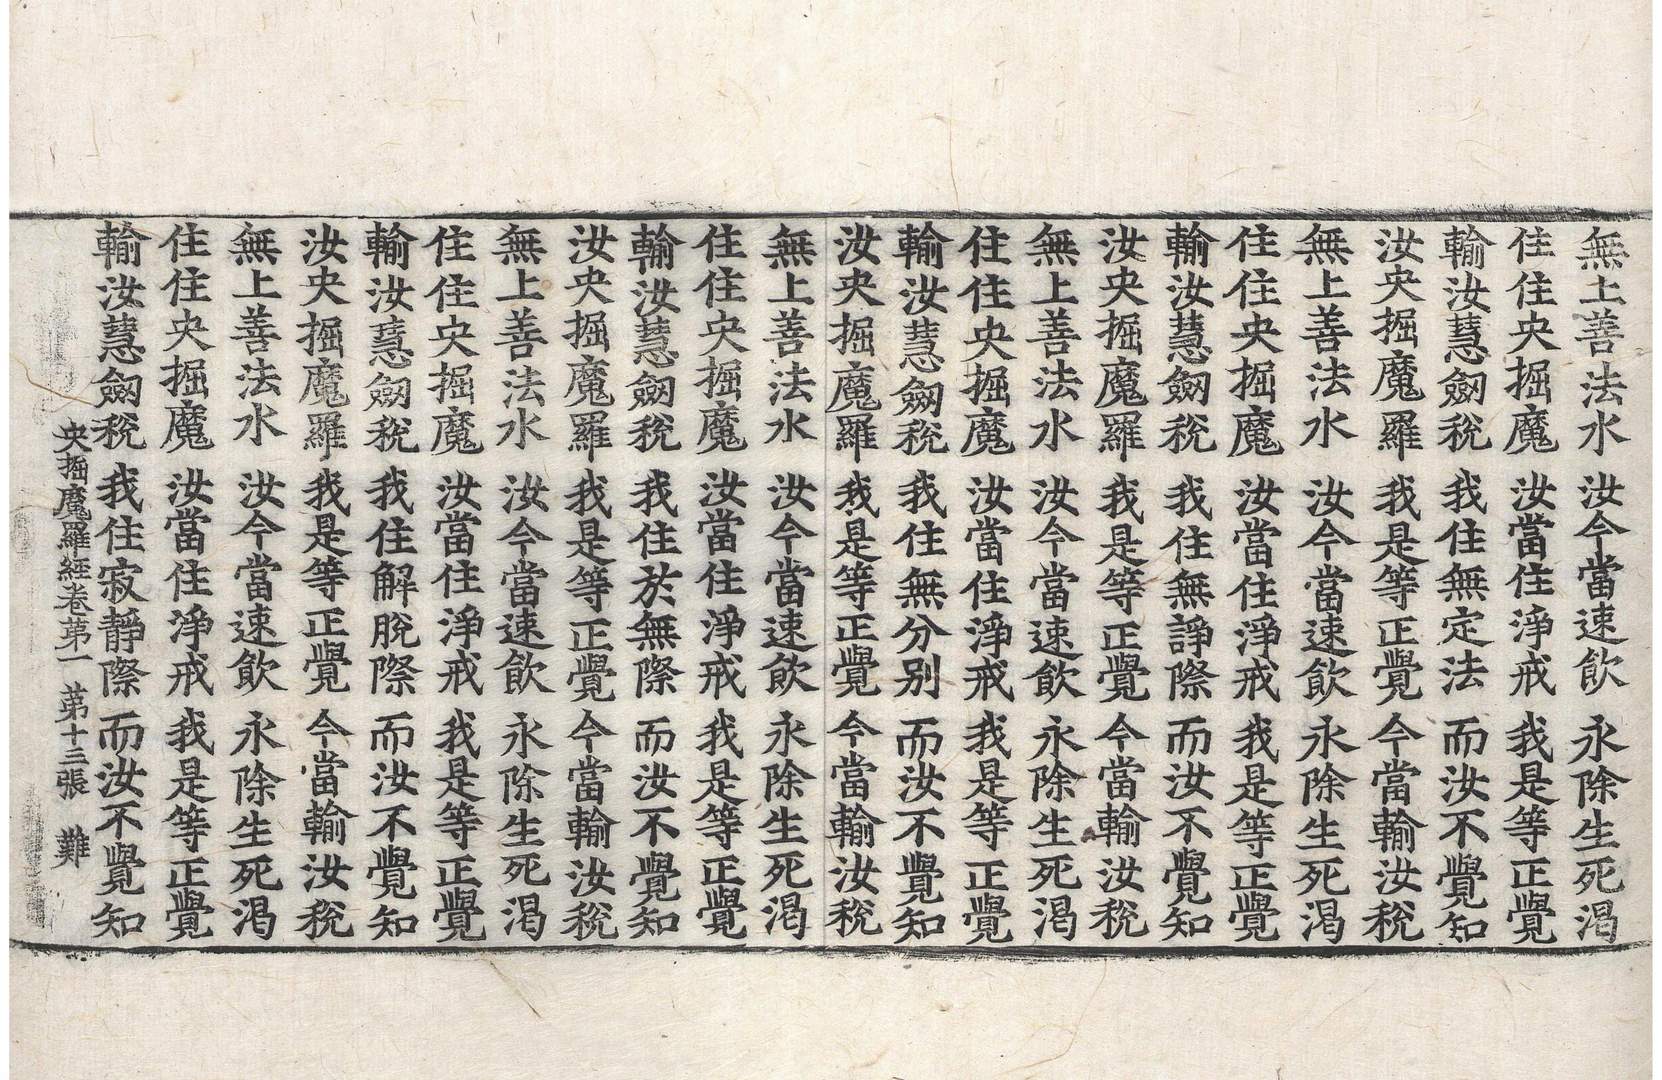 無上善法水 汝今當速飲 永除生死渴
住住央掘魔 汝當住淨戒 我是等正覺
輸汝慧劒稅 我住無定法 而汝不覺知
汝央掘魔羅 我是等正覺 今當輸汝稅
無上善法水 汝今當速飲 永除生死渴
住住央掘魔 汝當住淨戒 我是等正覺
輸汝慧劒稅 我住無諍際 而汝不覺知
汝央掘魔羅 我是等正覺 今當輸汝稅
無上善法水 汝今當速飲 永除生死渴
住住央掘魔 汝當住淨戒 我是等正覺
輸汝慧劒稅 我住無分別 而汝不覺知
汝央掘魔羅 我是等正覺 今當輸汝稅
無上善法水 汝今當速飲 永除生死渴
住住央掘魔 汝當住淨戒 我是等正覺
輸汝慧劒稅 我住於無際 而汝不覺知
汝央掘魔羅 我是等正覺 今當輸汝稅
無上善法水 汝今當速飲 永除生死渴
住住央掘魔 汝當住淨戒 我是等正覺
輸汝慧劒稅 我住解脫際 而汝不覺知
汝央掘魔羅 我是等正覺 今當輸汝稅
無上善法水 汝今當速飲 永除生死渴
住住央掘魔 汝當住淨戒 我是等正覺
輸汝慧劒稅 我住寂靜際 而汝不覺知
央掘魔羅經卷第一 第十三張 難